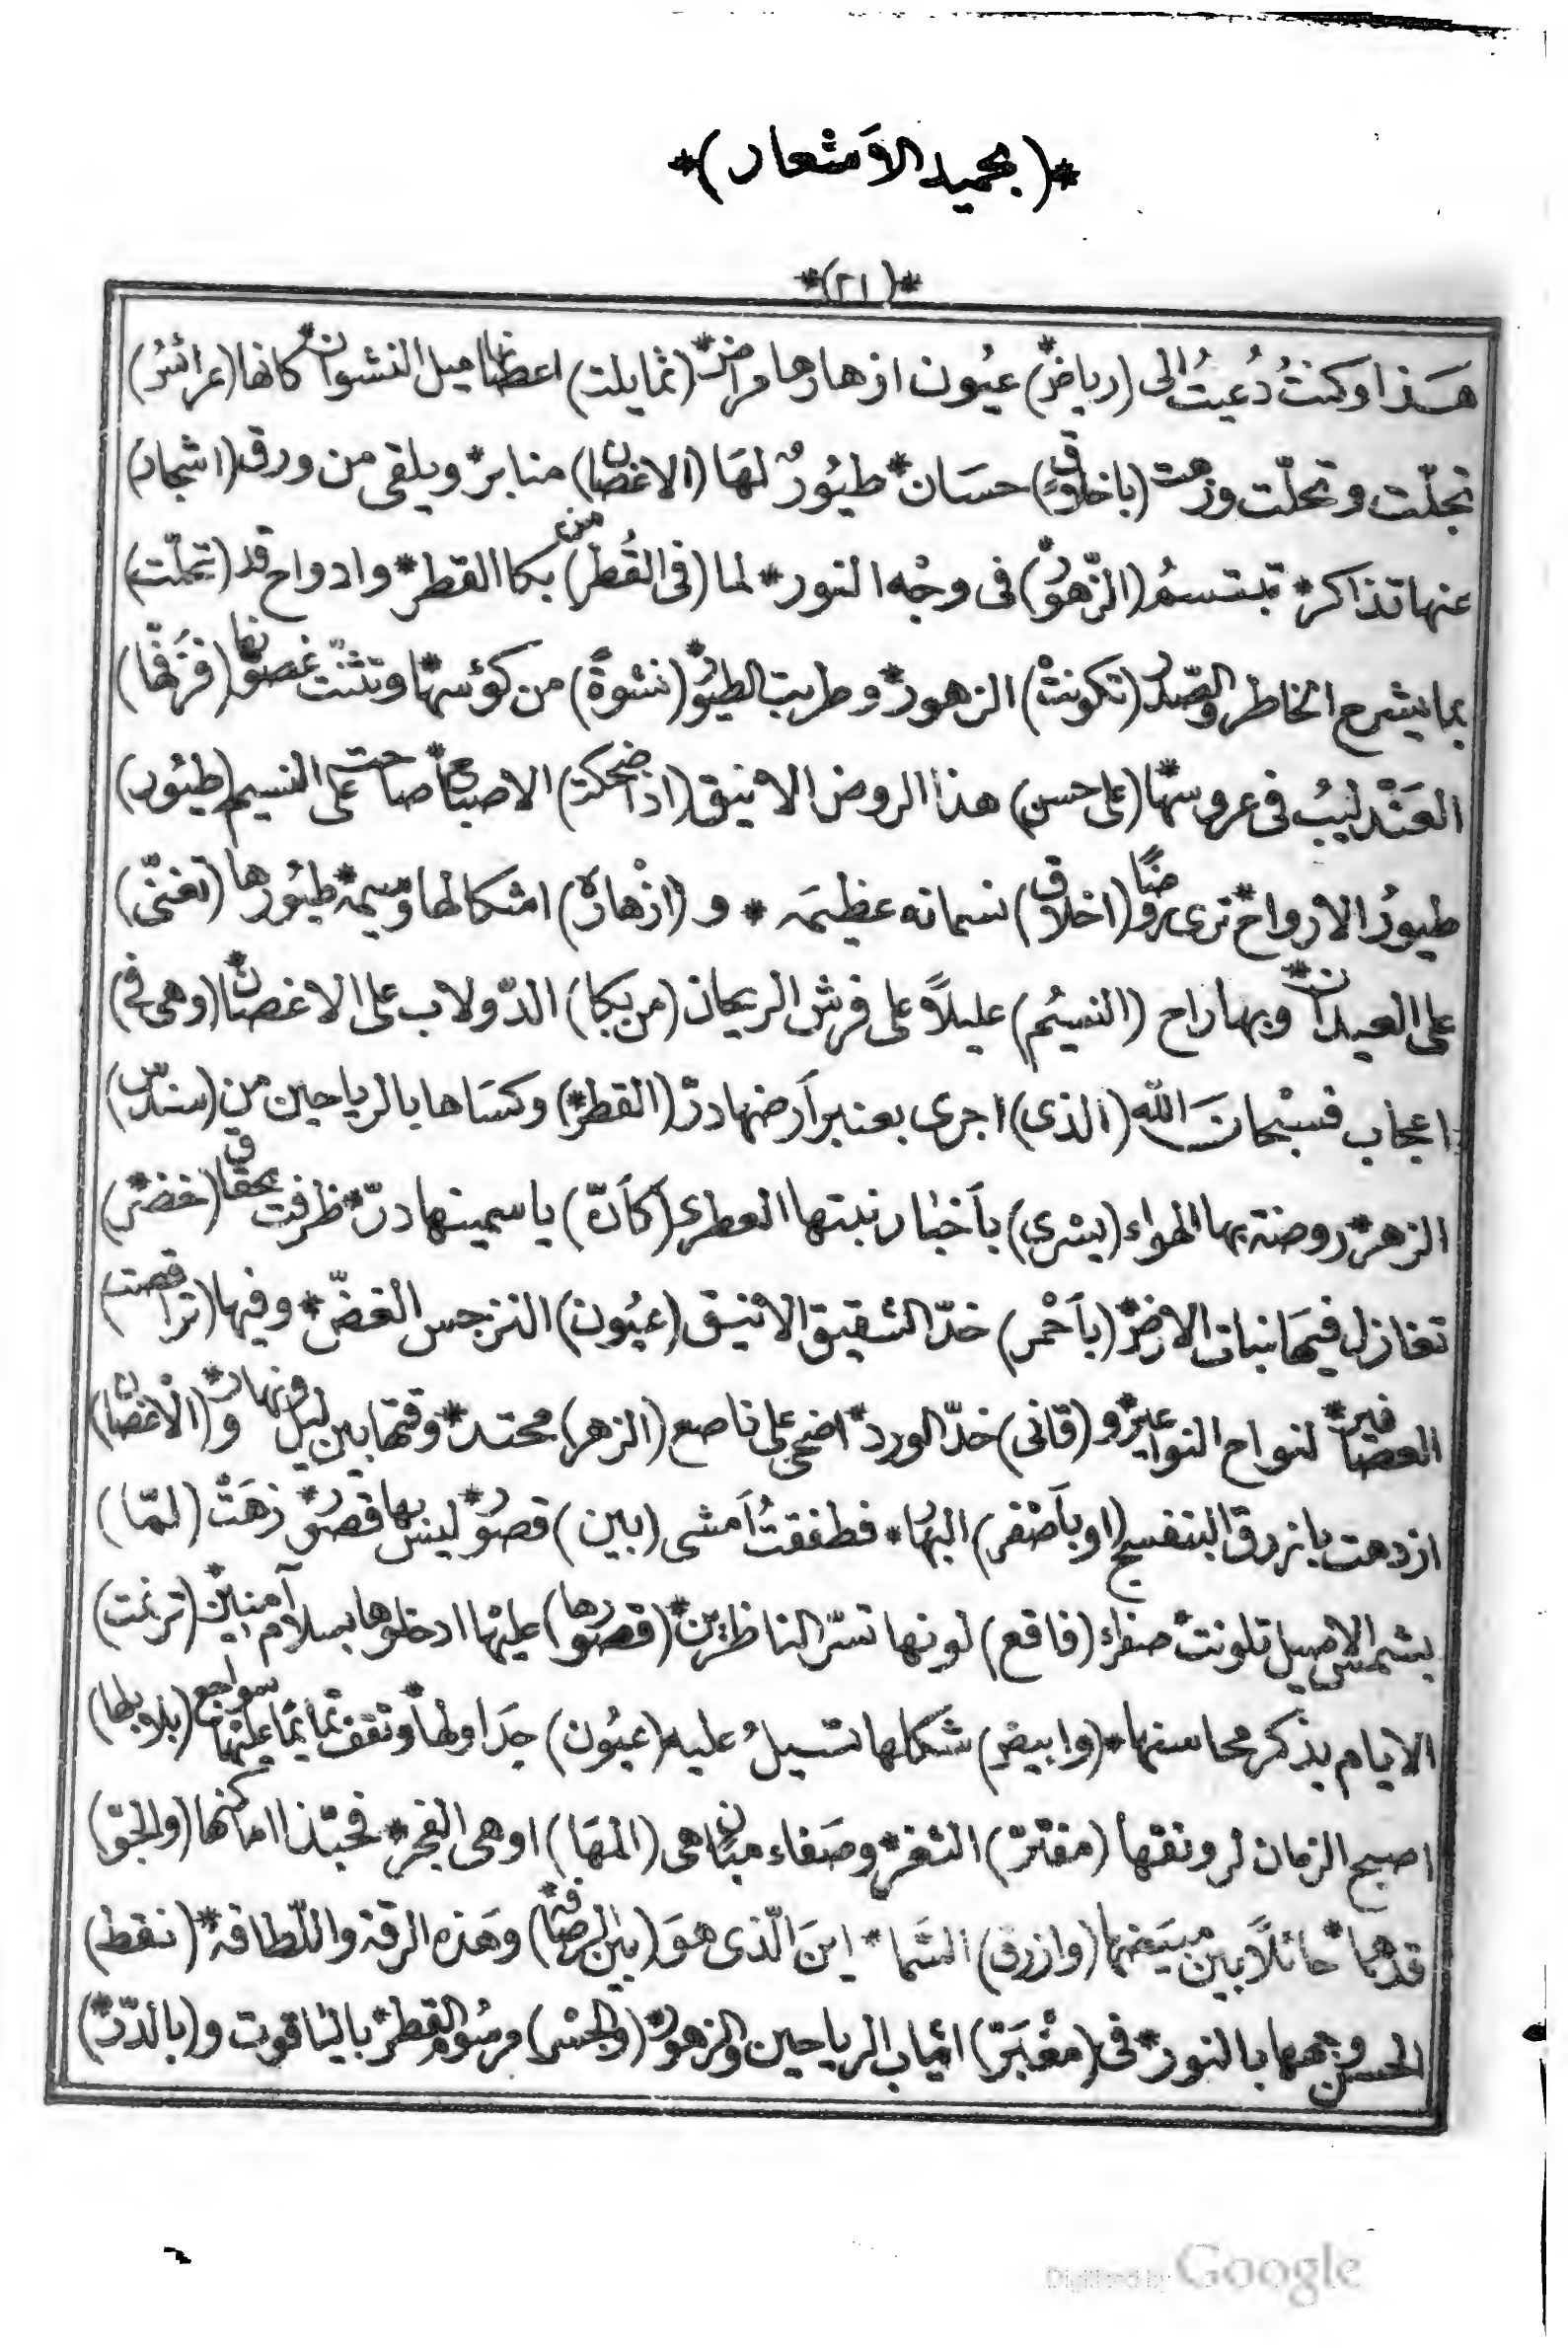 *(بحميد الأشعار)*
*(٢١)*
هَذا وكنتُ دُعيتُ الى (رياضٍ*) عيُون ازهارها مراضٌ* (تمايلت) اعطافها ميل النشوان* كانها (عرائسُ)
تجلّت وتحلّت وزهت (باخلاقٍ) حسَان* طيُورٌ لهَا (الاغصان) منابرٌ* ويلقى من ورق (اشجار)
عنها تذاكر* تبتسمُ (الزّهورُ) فى وجْه النور* لما (فى القُطرِ) من بكا القطر* وادواح قد (تحلّت)
بما يشرح الخاطر والصّدر* (تكونتْ) الزهور* وطربت الطيُور* (نشوةً) من كؤسها* وتثنّت غصونها (فزُفّها)
العَنْدليبُ فى عروسها* (على حسن) هذا الروض الانيق (اذا ضحكت) الاصباح* صاحت على النسيم (طيُور)
طيورُ الارواح* ترى روضًا (اخلاق) نسماته عظيمَه * و (ازْهارُهُ) اشكالها وسيمة* طيُورها (تغنّى)
على العيدان* وبها راح (النسيُم) عليلاً على فرش الريحان (من بكا) الدّولاب على الاغصان* (وهى فى)
اعجاب فسبْحانَ الله (الذى) اجرى بعنبر أَرضها درّ (القطر*) وكسَاها بالرياحين من (سندسٍ)
الزهر* روضة بها الهواء (يسْرى) بأَخبار نبتها العطرى (كأَنّ) ياسمينها درّ* ظرفت بحقاق (خضر*)
تغازل فيهَا نبات الارض* (بأَحْمرِ) خدّ الشقيق الانيق (عيُون) النرجس الغضّ* وفيها (تراقصت)
العصافير* لنواح النواعير* و (قانى) خدّ الورد* اضحى على ناصع (الزهر) محتد* وقتها بين ليل ونهار* و (الْاغصان)
ازدهت بازرق البنفسج (او بأَصْفرِ) البهار* فطفقتُ أَمشى (بين) قصور* ليس بها قصور* زهَتْ (لمّا)
بشمس الاصيل تلونتْ صفراء (فاقع) لونها تسرّ الناظرين* (قصورها) عليْها ادخلوها بسلام آمنين* (ترنمت)
الايام بذكر محاسنها* (وابيض) شكلها تسيلُ عليه (عيُون) جدَاولها* وتقف تمايمًا عليْها سواجع (بلابلها)
اصبح الزمان لرونقها (مفترّ) الثغر* وصَفاء مبان هى (المهَا) او هى الفجر* فحبّذا اماكنها (والجوّ)
قد هما* حائلاً بين مبيَضها (وازرق) السَّما* اينَ الّذى هوَ (بين الرصافة) وهَذه الرقة واللّطافة* (نقط)
الحسن وجهها بالنور* فى (مغْبَرّ) اثياب الرياحين والزهور* (والجسْر) مرسُوم القطر* بالياقوت و (بالدّرّ*)
Digitized by Google